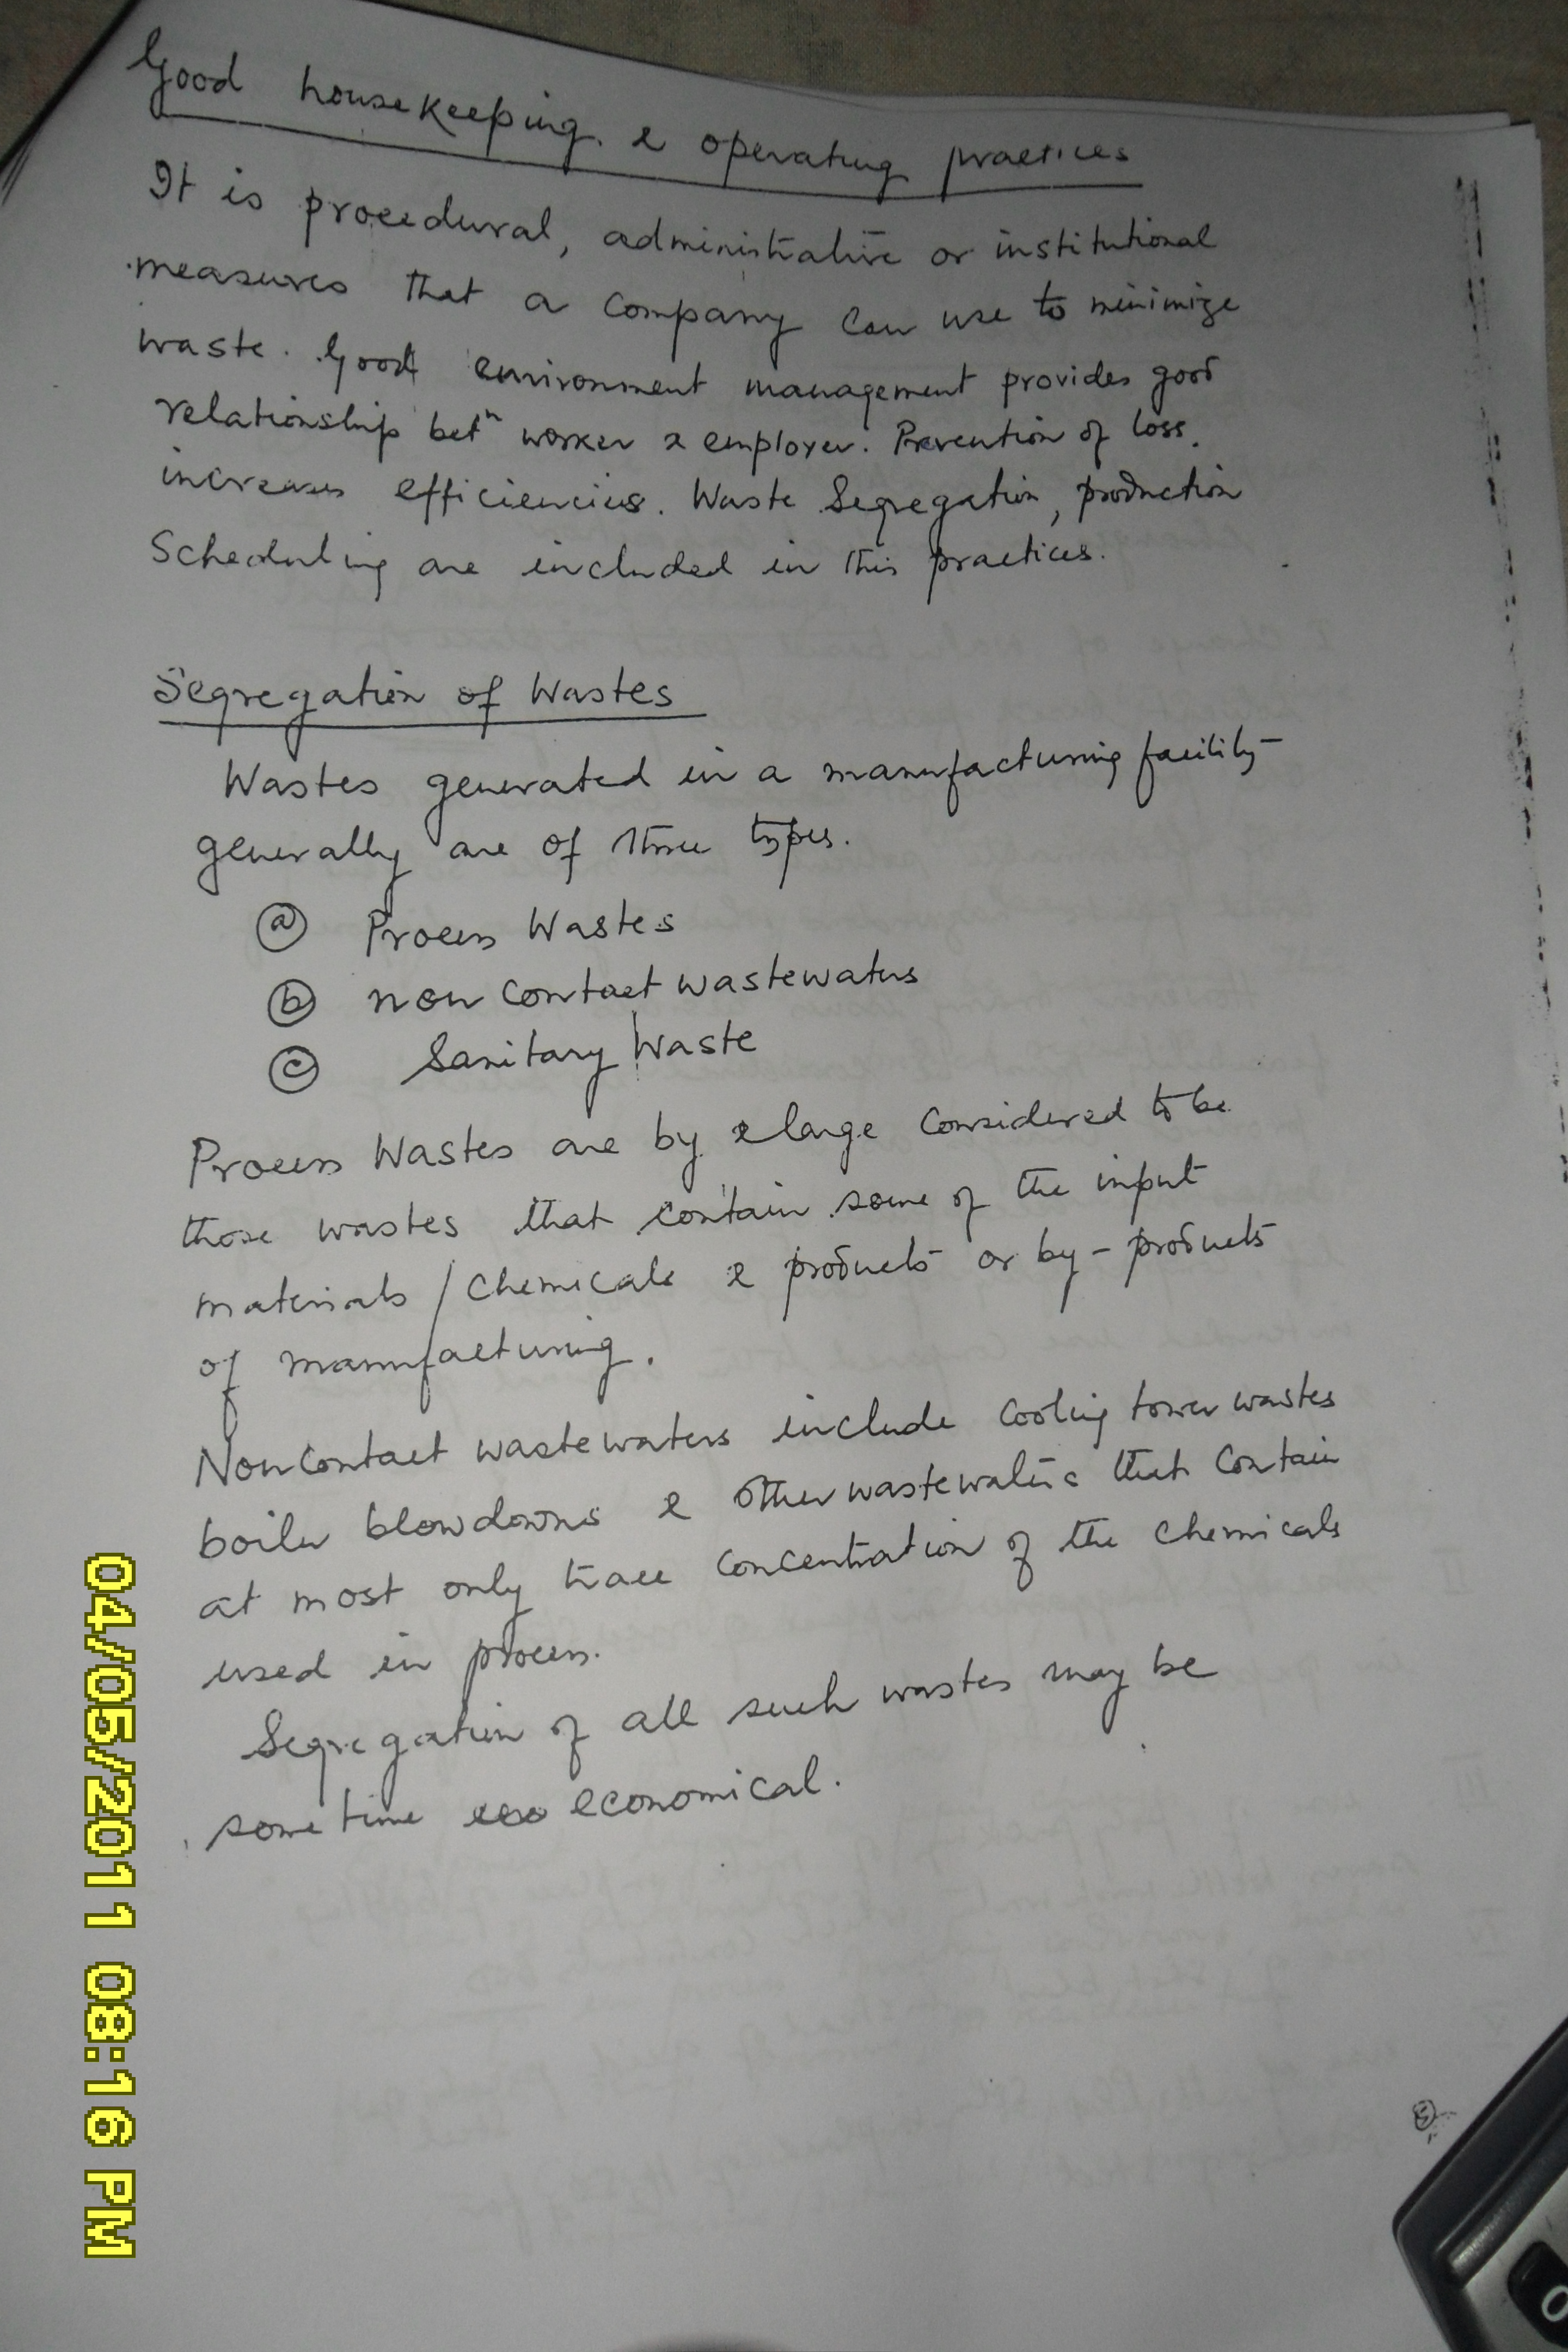 Good housekeeping & operating practices
It is procedural, administrative or institutional
measures that a company can use to minimize
waste. Good environment management provides good
relationship betn worker & employer. Prevention of loss.
increases efficiencies. Waste Segregation, production
Scheduling are included in this practices.
Segregation of Wastes
Wastes generated in a manufacturing facility
generally are of three types.
(a) Process Wastes
(b) non contact wastewaters
(c) Sanitary Waste
Process Wastes are by & large considered to be
those wastes that contain some of the input
materials / chemicals & products or by-products
of manufacturing.
Noncontact wastewaters include cooling tower wastes
boiler blowdowns & other wastewaters that contain
at most only trace concentration of the chemicals
used in process.
Segregation of all such wastes may be
some time economical.
04/05/2011 08:16 PM
0